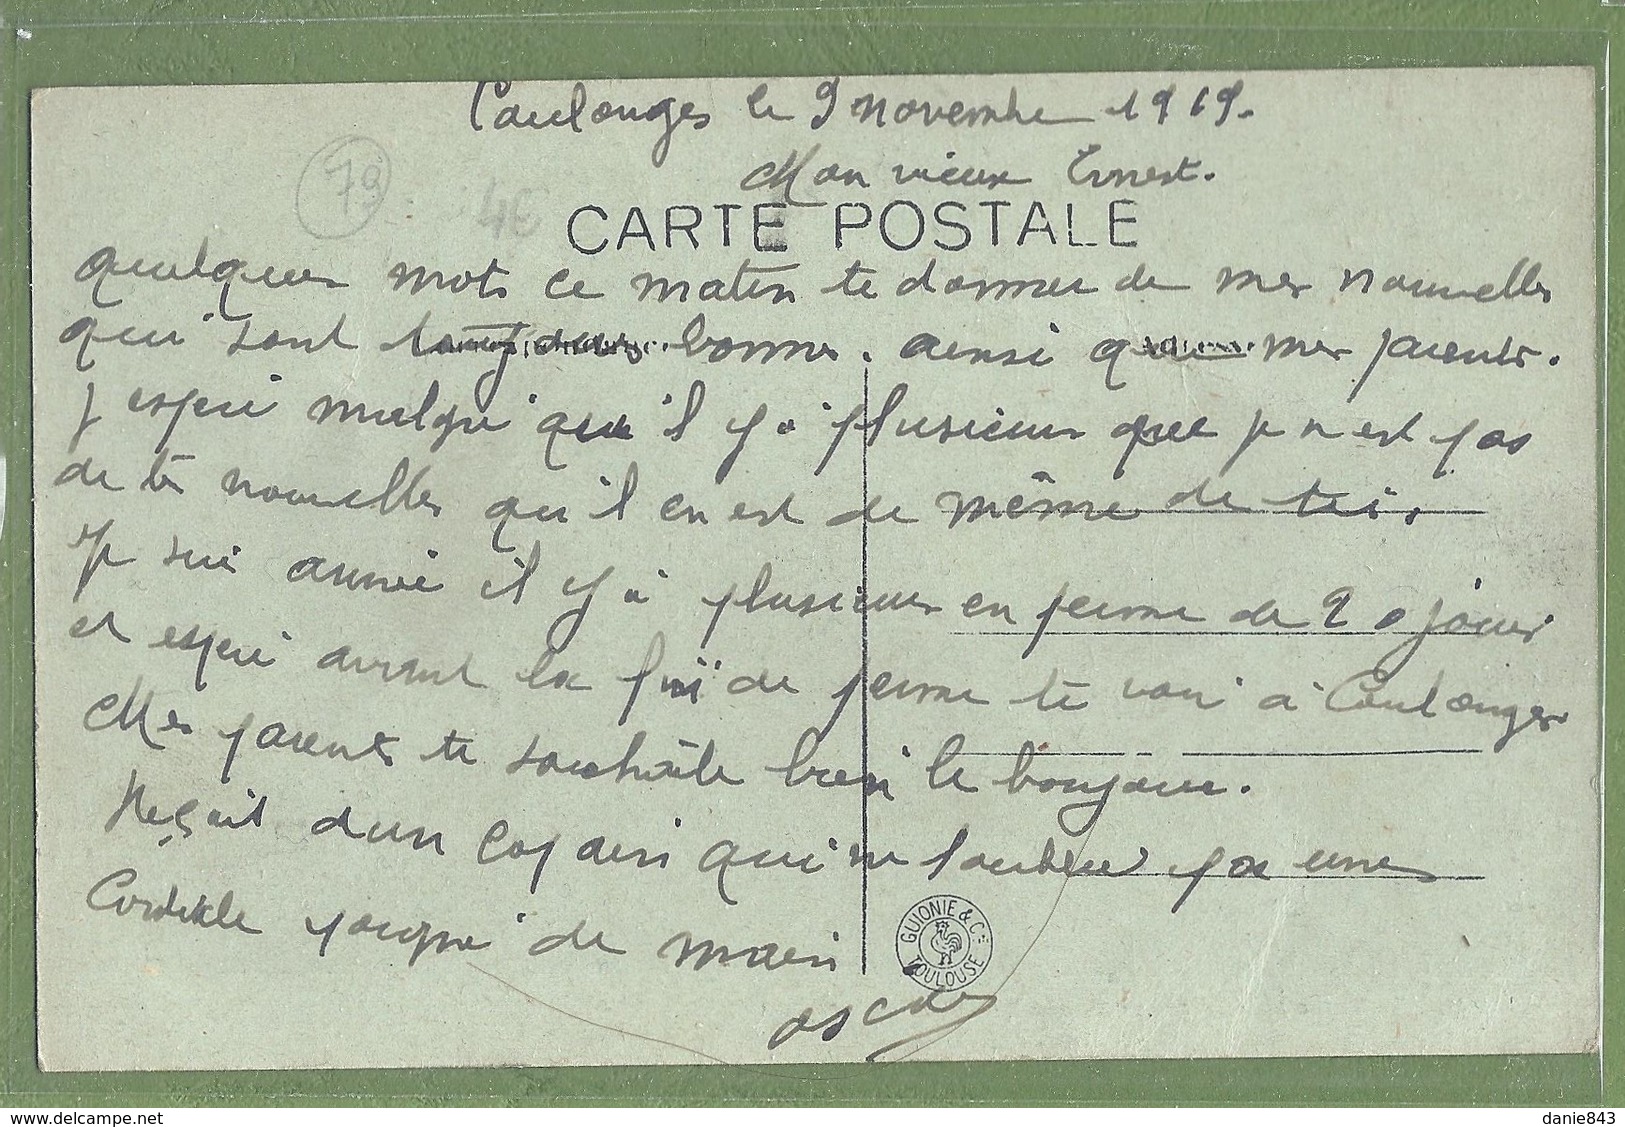 Coulonges le 9 novembre 1919.
Mon vieux Ernest.
79
4€
CARTE POSTALE
quelques mots ce matin te donner de mes nouvelles
qui sont toujours bonnes. ainsi que mes parents.
J espere malgré qu'il y a plusieurs que je n est pas
de tes nouvelles qu'il en est de même de toi.
Je suis arrivé il y a plusieurs en perme de 20 jours
et espere avant la fin de perme te voir à Coulonges
Mes parents te souhaite bien le bonjour.
Reçoit d'un Copain qui ne t'oublie pas une
Cordiale poigné de main
Oscar
GUIONIE & Cie TOULOUSE
danie843